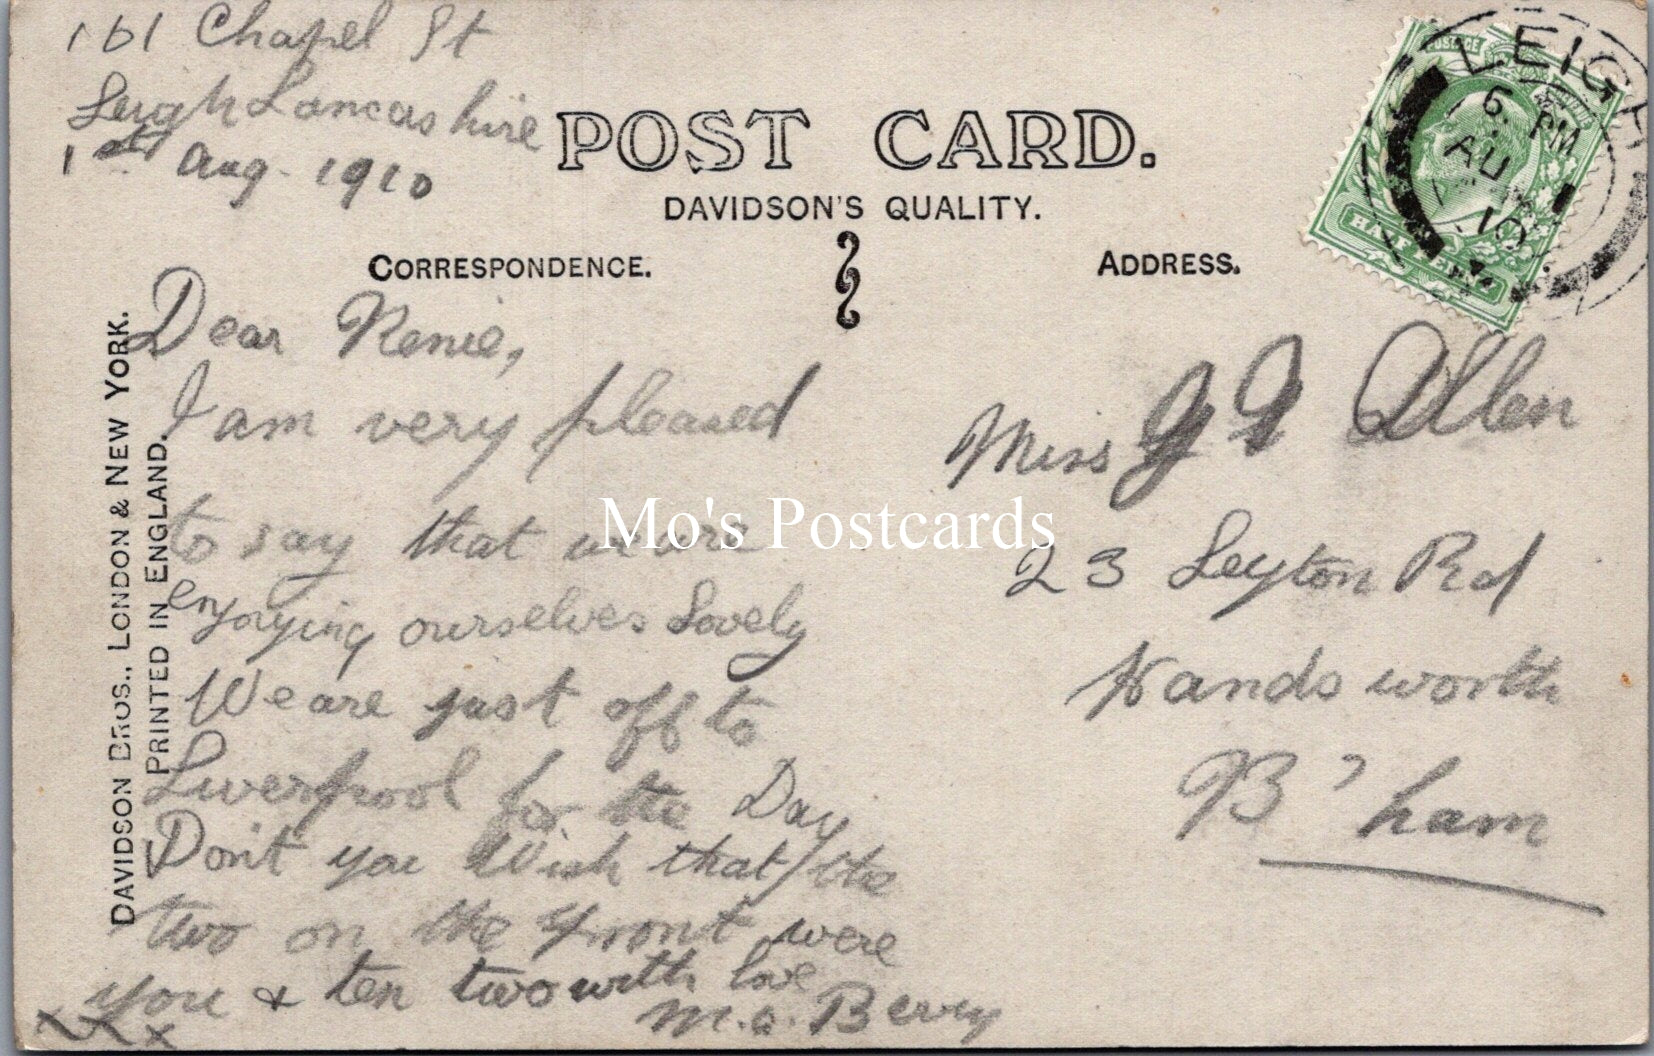 161 Chapel St
Leigh Lancashire
1st Aug. 1910
POST CARD.
DAVIDSON'S QUALITY.
CORRESPONDENCE.
ADDRESS.
Dear Renie,
I am very pleased
to say that we are
enjoying ourselves Lovely
We are just off to
Liverpool for the Day
Don't you Wish that the
two on the front were
you & ten two with love
M.A. Berry
xxx
Miss G I Allen
23 Leyton Rd
Hands worth
B'ham
DAVIDSON BROS., LONDON & NEW YORK.
PRINTED IN ENGLAND.
LEIGH
6. PM
AU 1
10
POSTAGE
HALF PENNY
Mo's Postcards